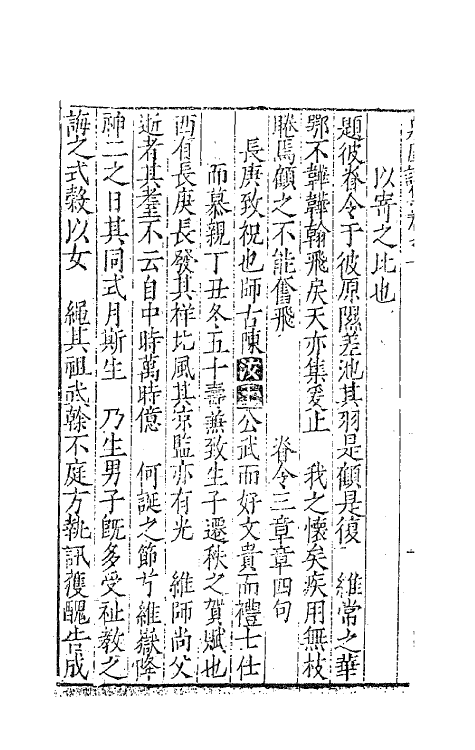 以寄之比也
題彼脊令于彼原隰差池其羽是顧是復　維常之華
鄂不韡韡翰飛戾天亦集爰止　我之懷矣疾用無枝
睠焉顧之不能奮飛　脊令三章章四句
長庚致祝也師古陳公武而好文貴而禮士仕
而慕親丁丑冬五十壽兼致生子遷秩之賀賦也
西有長庚長發其祥北風其京監亦有光　維師尚父
逝者其耋不云自中時萬時億　何誕之節兮維嶽降
神二之日其同式月斯生　乃生男子旣多受祉教之
誨之式穀以女　繩其祖武榦不庭方執訊獲醜告成